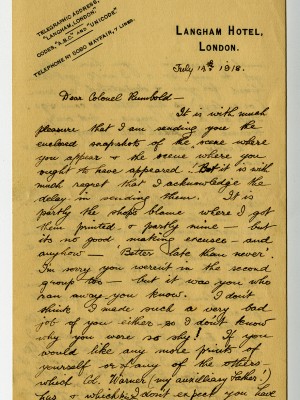 TELEGRAPHIC ADDRESS,
"LANGHAM, LONDON."
CODES, "A.B.C." AND "UNICODE"
TELEPHONE Nº 5080 MAYFAIR, 7 LINES.
LANGHAM HOTEL,
LONDON.
July 14th 1918.
Dear Colonel Rumbold—
It is with much
pleasure that I am sending you the
enclosed snapshots of the scene where
you appear & the scene where you
ought to have appeared! But it is with
much regret that I acknowledge the
delay in sending them. It is
partly the shops blame where I got
them printed & partly mine — but
its no good making excuses — and
anyhow — 'Better late than never'.
I'm sorry you weren't in the second
group too — but it was you who
ran away you know. I don't
think I made such a very bad
job of you either so I don't know
why you were so shy! If you
would like any more prints of
yourself or of any of the others
which Col. Warner (my auxiliary father!)
has & which I don't expect you have